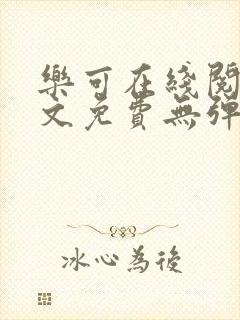 樂可在綫閱
文免費無彈
冰心為後